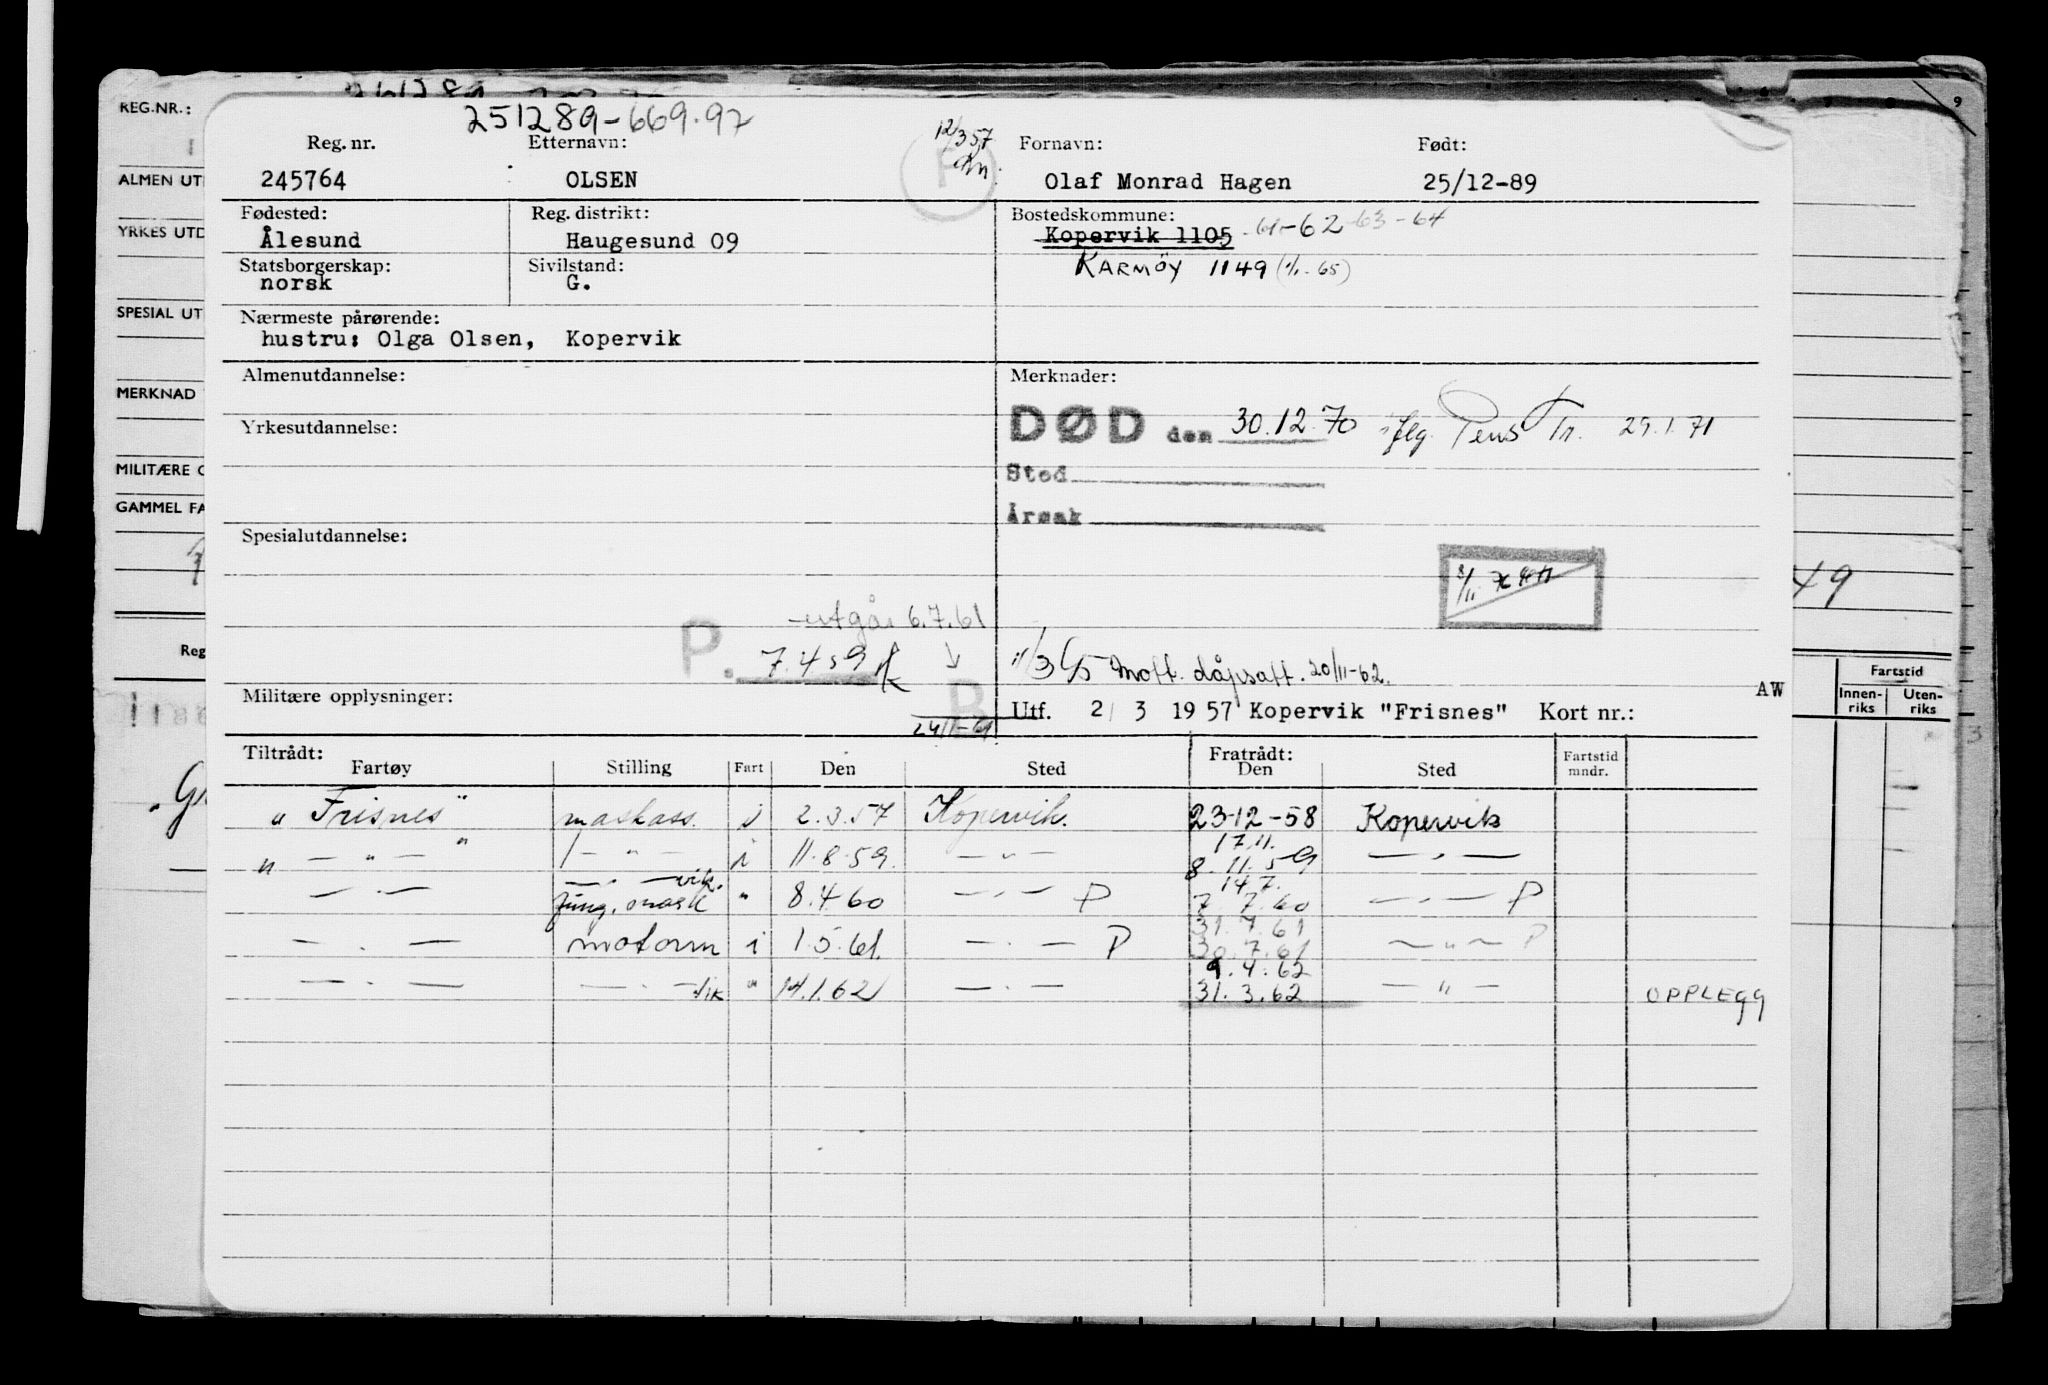 251289-669.97
12/3 57
REG.NR.:
Reg. nr. Etternavn: Fornavn: Født:
245764 OLSEN Olaf Monrad Hagen 25/12-89
ALMEN UT
Fødested: Reg. distrikt: Bostedskommune:
Ålesund Haugesund 09 Kopervik 1105 -61-62-63-64
YRKES UTD
Statsborgerskap: Sivilstand: KARMØY 1149 (1/1-65)
norsk G.
SPESIAL UT
Nærmeste pårørende:
hustru: Olga Olsen, Kopervik
Almenutdannelse: Merknader:
MERKNAD
DØD den 30.12.70 iflg. Pens Tr. 29.1.71
Yrkesutdannelse:
MILITÆRE O
Sted
GAMMEL FA
Årsak
Spesialutdannelse:
49
utgår 6.7.61
P. 7.4 59
Reg
Mott. dåpsatt. 20/11-62.
Fartstid
Innen-riks Uten-riks
Militære opplysninger: B AW
24/1-61
Utf. 2/ 3 1957 Kopervik "Frisnes" Kort nr.:
Tiltrådt: Fratrådt:
Fartøy Stilling Fart Den Sted Den Sted Fartstid mndr.
"Frisnes" maskass. i 2.3.57 Kopervik. 23-12-58 Kopervik
17.11.
" — " — " — " — i 11.8.59. — " — 8.11.59 — " —
— " — vik. 14.7.
— " — fung. mask " 8.4.60 — " — P 7.7.60 — " — P
31.7.61
— " — motorm i 1.5.61. — " — P 30.7.61 — " — P
9.4.62
— " — — " — vik " 14.1.62 — " — 31.3.62 — " — OPPLEGG